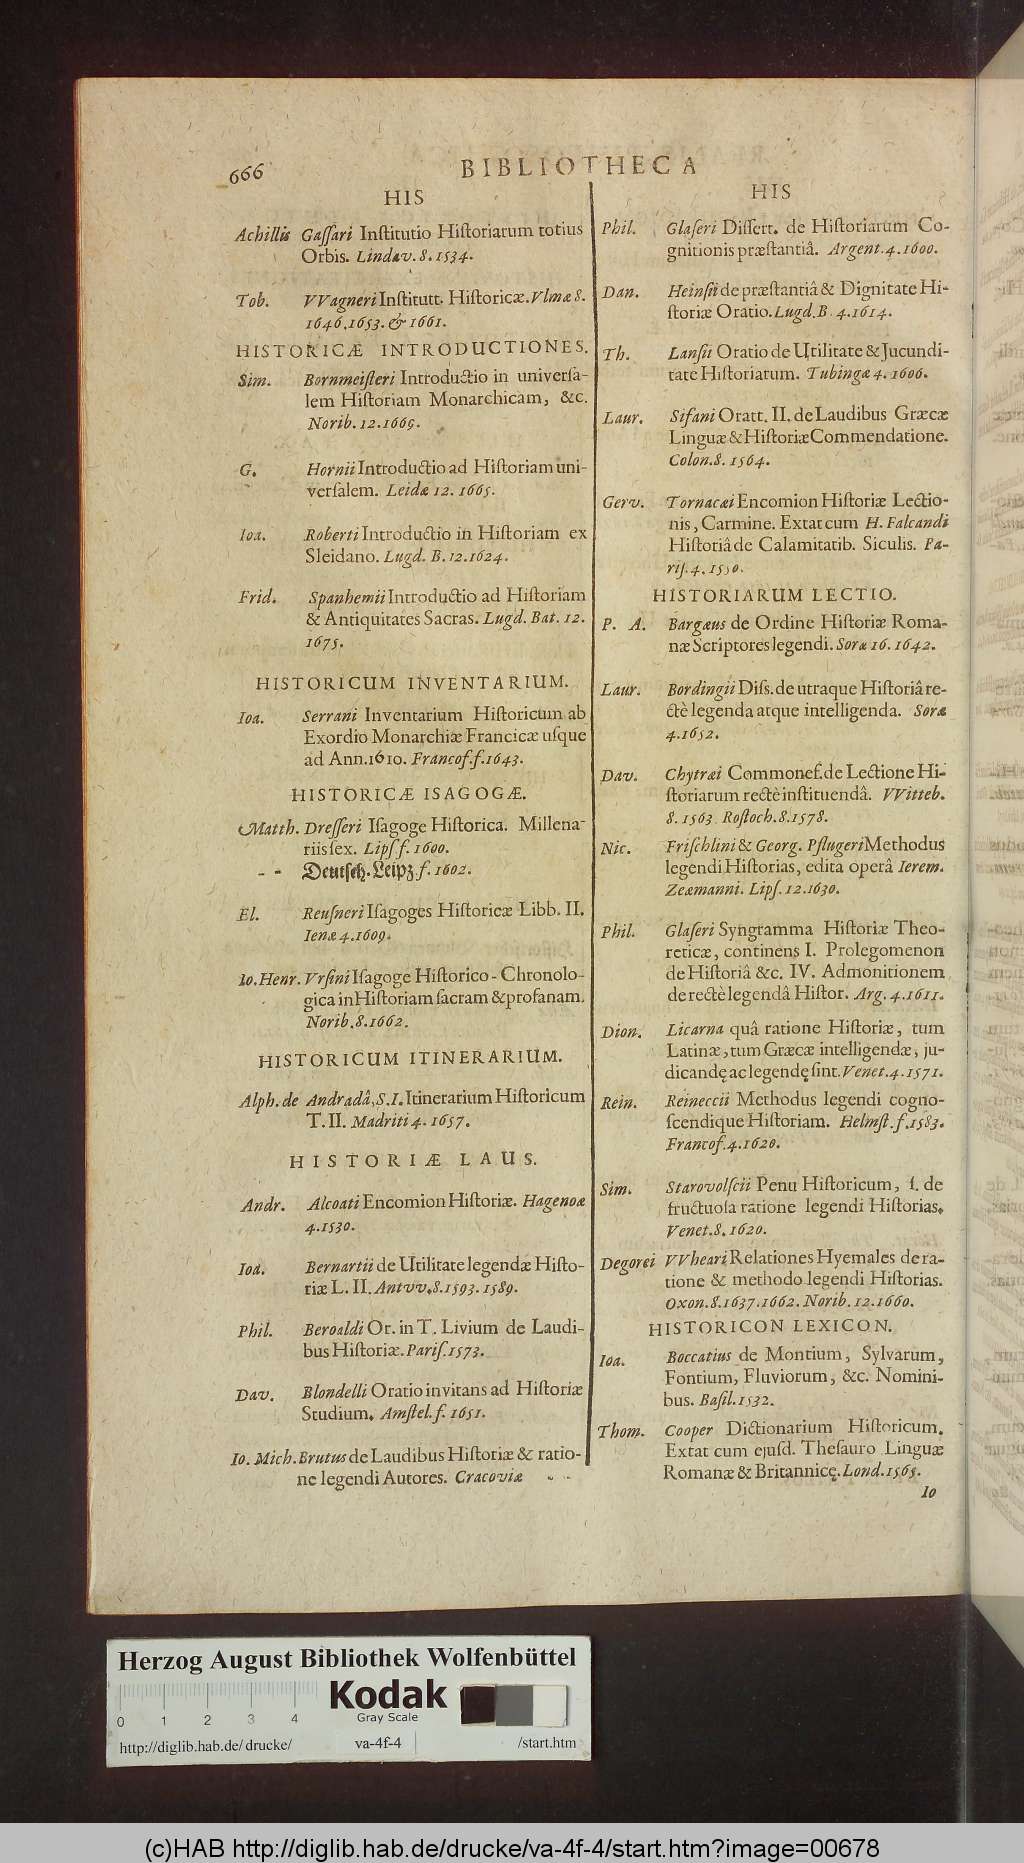 666
BIBLIOTHECA
HIS
Achillis Gaſſari Inſtitutio Hiſtoriarum totius
Orbis. Lindav. 8. 1534.
Tob. VVagneri Inſtitutt. Hiſtoricæ. Vlmæ 8.
1646. 1653. & 1661.
HISTORICÆ INTRODUCTIONES.
Sim. Bornmeiſteri Introductio in univerſa-
lem Hiſtoriam Monarchicam, &c.
Norib. 12. 1669.
G. Hornii Introductio ad Hiſtoriam uni-
verſalem. Leidæ 12. 1665.
Ioa. Roberti Introductio in Hiſtoriam ex
Sleidano. Lugd. B. 12. 1624.
Frid. Spanhemii Introductio ad Hiſtoriam
& Antiquitates Sacras. Lugd. Bat. 12.
1675.
HISTORICUM INVENTARIUM.
Ioa. Serrani Inventarium Hiſtoricum ab
Exordio Monarchiæ Francicæ uſque
ad Ann. 1610. Francof. f. 1643.
HISTORICÆ ISAGOGÆ.
Matth. Dreſſeri Iſagoge Hiſtorica. Millena-
riis ſex. Lipſ. f. 1600.
- - Deutſch. Leipz. f. 1602.
El. Reuſneri Iſagoges Hiſtoricæ Libb. II.
Ienæ 4. 1609.
Io. Henr. Vrſini Iſagoge Hiſtorico-Chronolo-
gica in Hiſtoriam ſacram & profanam.
Norib. 8. 1662.
HISTORICUM ITINERARIUM.
Alph. de Andradâ, S. I. Itinerarium Hiſtoricum
T. II. Madriti 4. 1657.
HISTORIÆ LAUS.
Andr. Alcoati Encomion Hiſtoriæ. Hagenoæ
4. 1530.
Ioa. Bernartii de Utilitate legendæ Hiſto-
riæ L. II. Antvv. 8. 1593. 1589.
Phil. Beroaldi Or. in T. Livium de Laudi-
bus Hiſtoriæ. Pariſ. 1573.
Dav. Blondelli Oratio invitans ad Hiſtoriæ
Studium. Amſtel. f. 1651.
Io. Mich. Brutus de Laudibus Hiſtoriæ & ratio-
ne legendi Autores. Cracoviæ - -
HIS
Phil. Glaſeri Diſſert. de Hiſtoriarum Co-
gnitionis præſtantiâ. Argent. 4. 1600.
Dan. Heinſii de præſtantiâ & Dignitate Hi-
ſtoriæ Oratio. Lugd. B. 4. 1614.
Th. Lanſii Oratio de Utilitate & Jucundi-
tate Hiſtoriarum. Tubingæ 4. 1606.
Laur. Sifani Oratt. II. de Laudibus Græcæ
Linguæ & Hiſtoriæ Commendatione.
Colon. 8. 1564.
Gerv. Tornacæi Encomion Hiſtoriæ Lectio-
nis, Carmine. Extat cum H. Falcandi
Hiſtoriâ de Calamitatib. Siculis. Pa-
riſ. 4. 1550.
HISTORIARUM LECTIO.
P. A. Bargæus de Ordine Hiſtoriæ Roma-
næ Scriptores legendi. Soræ 16. 1642.
Laur. Bordingii Diſs. de utraque Hiſtoriâ re-
ctè legenda atque intelligenda. Soræ
4. 1652.
Dav. Chytræi Commonef. de Lectione Hi-
ſtoriarum rectè inſtituendâ. VVitteb.
8. 1563 Roſtoch. 8. 1578.
Nic. Friſchlini & Georg. Pflugeri Methodus
legendi Hiſtorias, edita operâ Ierem.
Zeæmanni. Lipſ. 12. 1630.
Phil. Glaſeri Syngramma Hiſtoriæ Theo-
reticæ, continens I. Prolegomenon
de Hiſtoriâ &c. IV. Admonitionem
de rectè legendâ Hiſtor. Arg. 4. 1611.
Dion. Licarna quâ ratione Hiſtoriæ, tum
Latinæ, tum Græcæ intelligendæ, ju-
dicandę ac legendę ſint. Venet. 4. 1571.
Rein. Reineccii Methodus legendi cogno-
ſcendique Hiſtoriam. Helmſt. f. 1583.
Francof. 4. 1620.
Sim. Starovolſcii Penu Hiſtoricum, ſ. de
fructuoſa ratione legendi Hiſtorias.
Venet. 8. 1620.
Degorei VVheari Relationes Hyemales de ra-
tione & methodo legendi Hiſtorias.
Oxon. 8. 1637. 1662. Norib. 12. 1660.
HISTORICON LEXICON.
Ioa. Boccatius de Montium, Sylvarum,
Fontium, Fluviorum, &c. Nomini-
bus. Baſil. 1532.
Thom. Cooper Dictionarium Hiſtoricum.
Extat cum ejuſd. Theſauro Linguæ
Romanæ & Britannicę. Lond. 1565.
Io
Herzog August Bibliothek Wolfenbüttel
Kodak
Gray Scale
0 1 2 3 4
http://diglib.hab.de/drucke/ va-4f-4 /start.htm
(c)HAB http://diglib.hab.de/drucke/va-4f-4/start.htm?image=00678